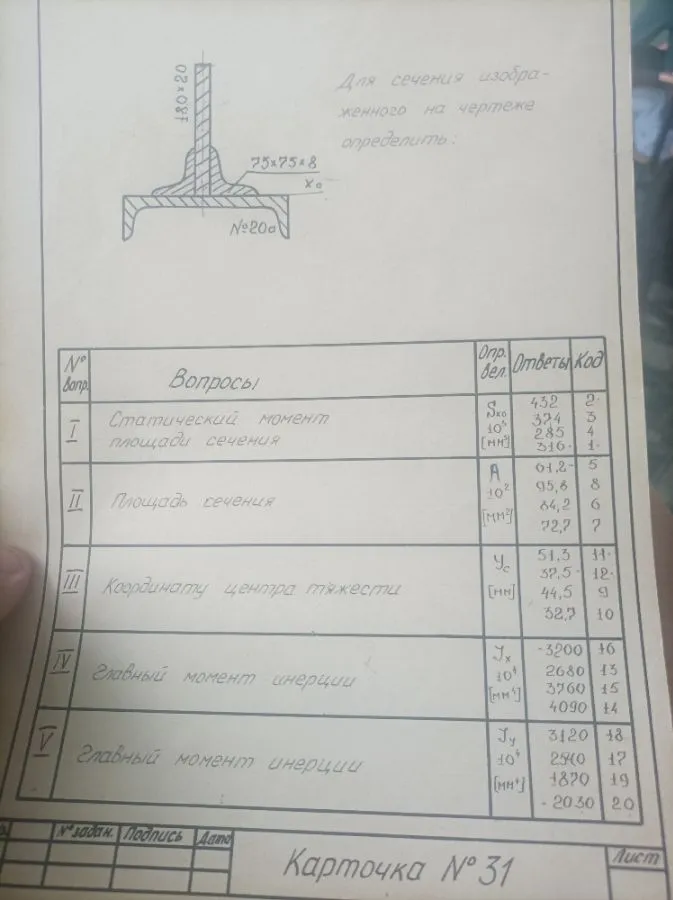 180×20
Для сечения изобра-
женного на чертеже
определить:
75×75×8
x₀
№20а
№ вопр.
Вопросы
Опр. вел.
Ответы
Код
I
Статический момент
площади сечения
Sx₀
10³
[мм³]
432 2
374 3
285 4
316 1
II
Площадь сечения
A
10²
[мм²]
61,2 5
95,8 8
84,2 6
72,7 7
III
Координату центра тяжести
Yc
[мм]
51,3 11
37,5 12
44,5 9
32,7 10
IV
Главный момент инерции
Jx
10⁴
[мм⁴]
3200 16
2680 13
3760 15
4090 14
V
Главный момент инерции
Jy
10⁴
[мм⁴]
3120 18
2540 17
1870 19
2030 20
№ задан.
Подпись
Дата
Карточка № 31
Лист